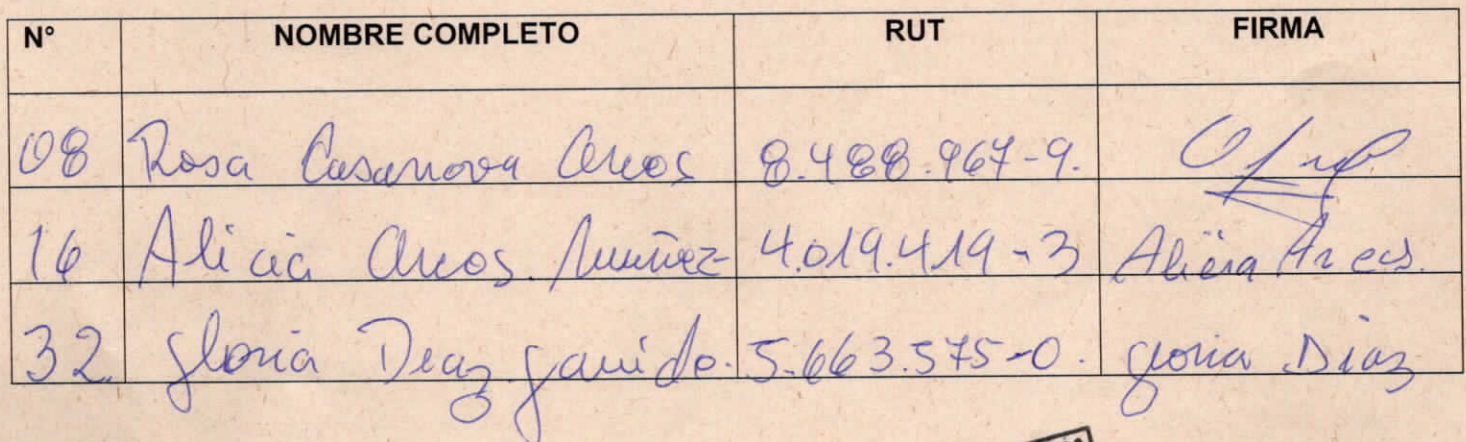 N° NOMBRE COMPLETO RUT FIRMA
08 Rosa Casanova Arcos 8.488.967-9.
16 Alicia Arcos. Muñoz 4.019.419-3 Alicia Arcos.
32 Gloria Diaz Garrido. 5.663.575-0. Gloria Diaz